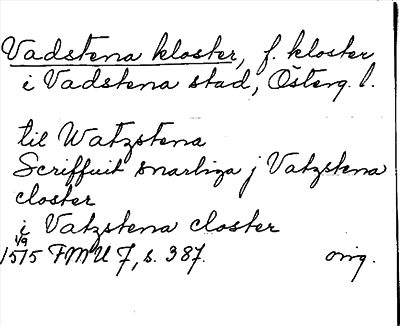 Vadstena kloster, f. kloster
i Vadstena stad, Österg. l.
til Watzstena
Scriffuit snarliga j Vatzstena
closter
i Vatzstena closter
1/9
1515 FMU 7, s. 387. orig.